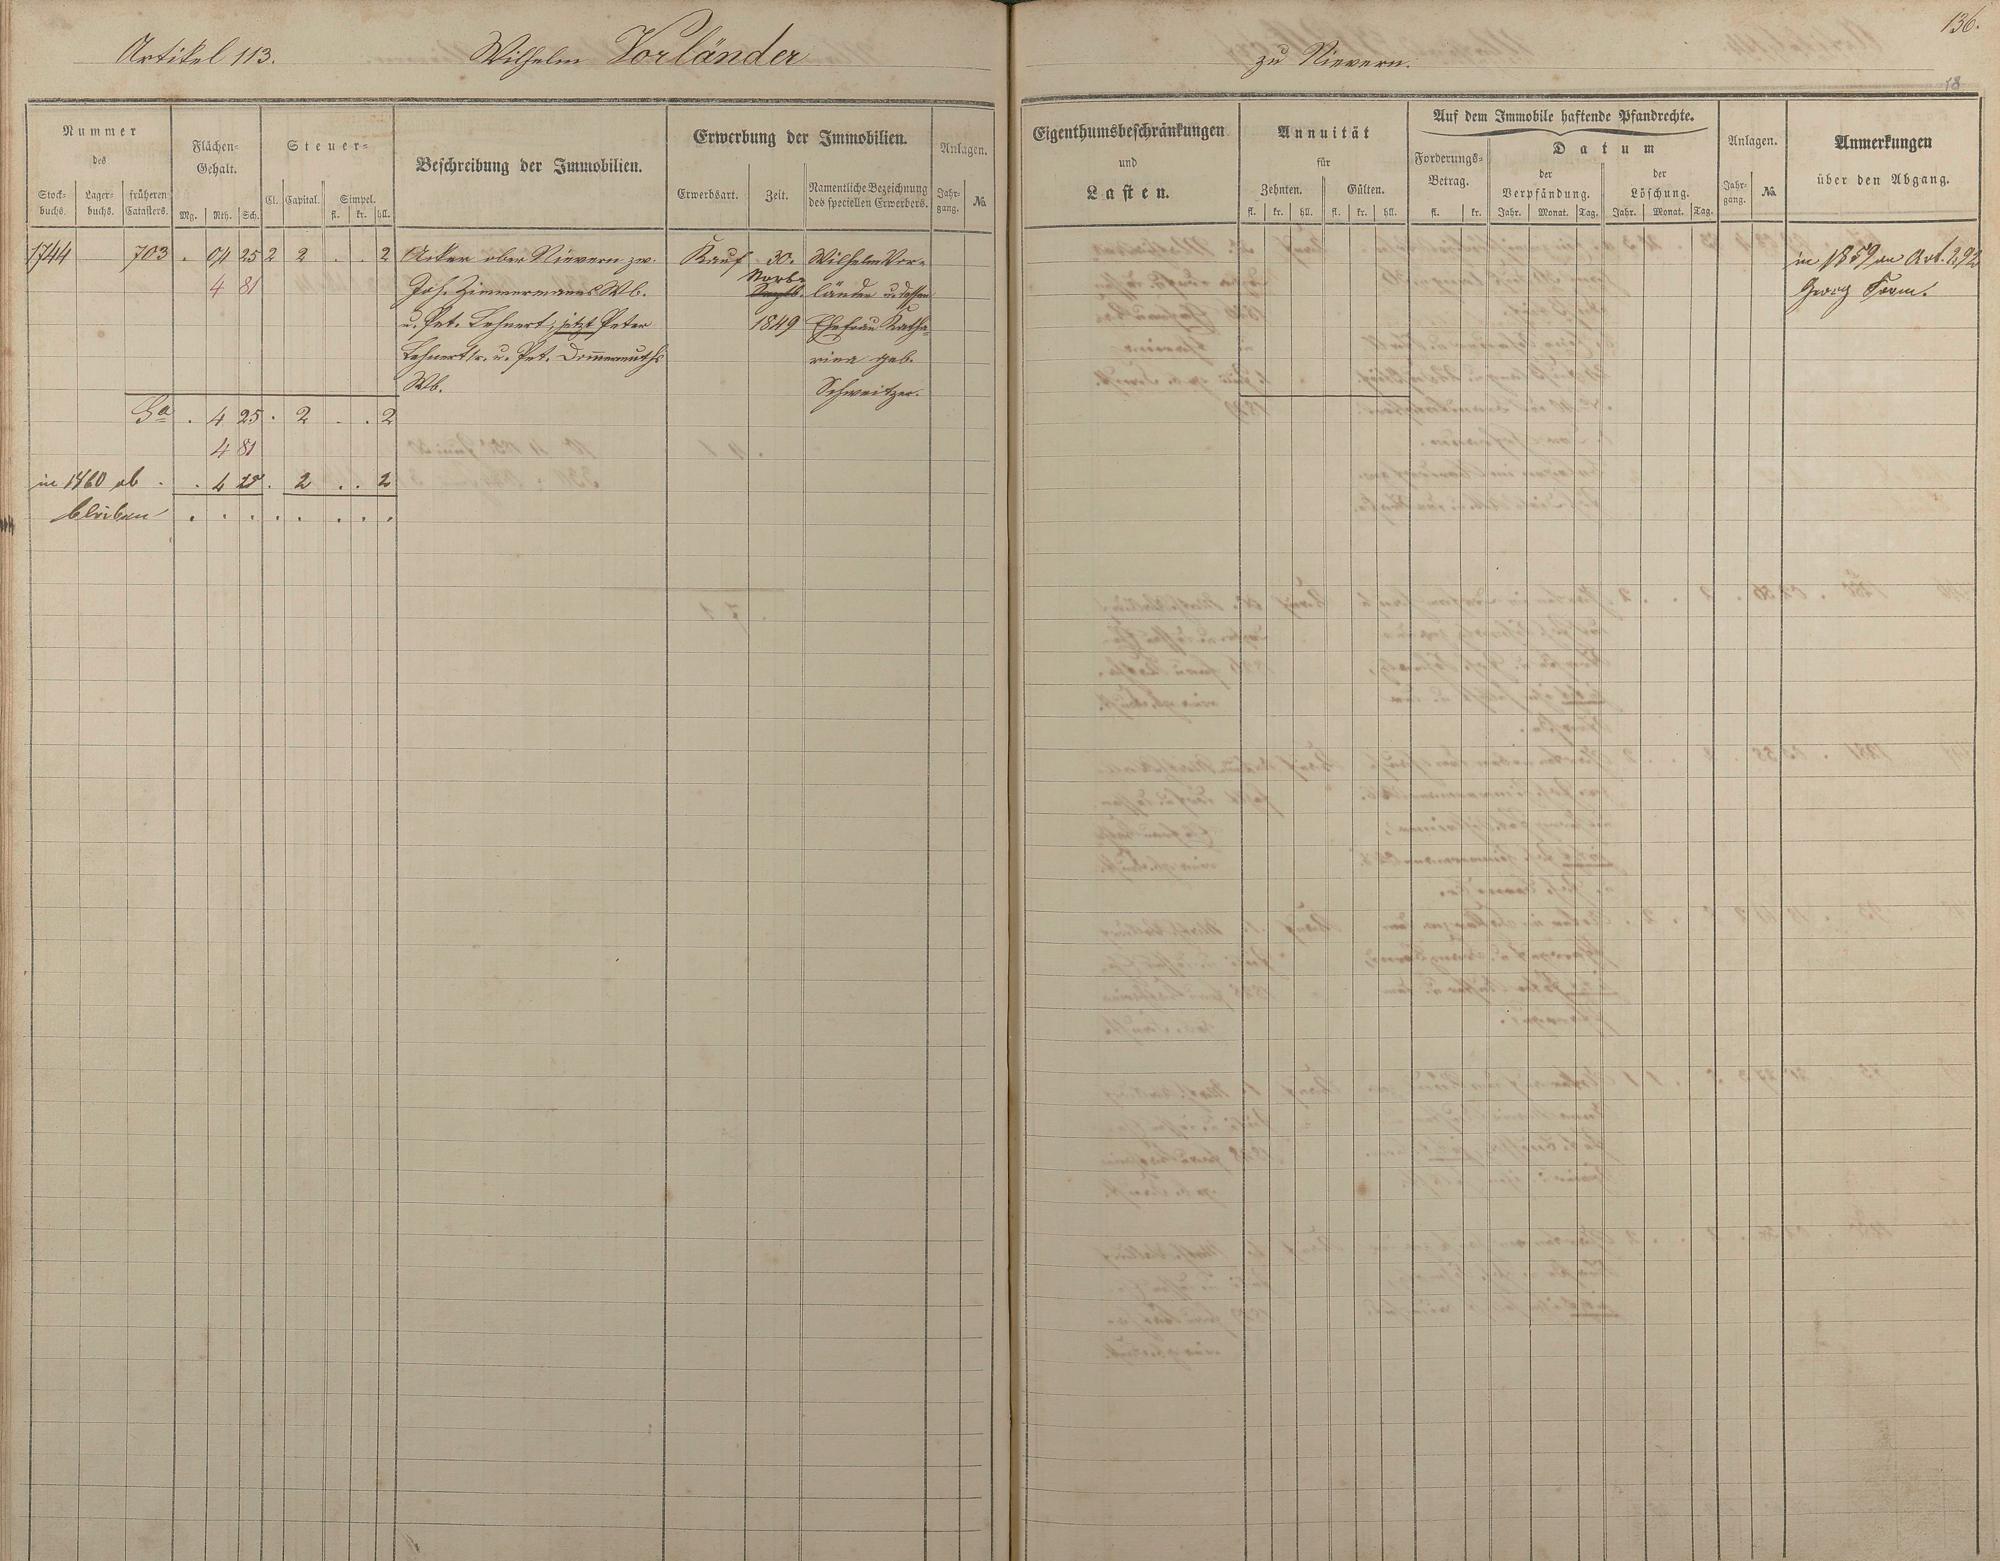 Artikel 113. Wilhelm Vorländer
zu Nievern.
136.
18
Nummer
des
Stock-
buchs.
Lager-
buchs.
früheren
Catasters.
Flächen-
Gehalt.
Mg. Rth. Sch.
Steuer-
Cl. Capital. Simpel.
fl. kr. hll.
Beschreibung der Immobilien.
Erwerbung der Immobilien.
Erwerbsart. Zeit. Namentliche Bezeichnung
des speciellen Erwerbers.
Anlagen.
Jahr-
gang. No.
Eigenthumsbeschränkungen
und
Lasten.
Annuität
für
Zehnten. Gülten.
fl. kr. hll. fl. kr. hll.
Auf dem Immobile haftende Pfandrechte.
Forderungs-
Betrag.
fl. kr.
Datum
der
Verpfändung.
Jahr. Monat. Tag.
der
Löschung.
Jahr. Monat. Tag.
Anlagen.
Jahr-
gang. No.
Anmerkungen
über den Abgang.
1744 703 . 04 25 2 2 . . 2 Acker ober Nievern zw. Kauf 30. Wilhelm Vor- in 1859 an Art. 292
4 81 Joh. Zimmermanns Wb. Novbr. länder u. dessen Georg
u. Pet. Lehnert; jetzt Peter 1849 Ehefrau Katha-
Lehnert u. Pet. Dommermuths rina geb.
Wb. Schweitzer.
Sa . 4 25 . 2 . . 2
4 81
in 1860 ab . . 4 25 . 2 . . 2
bleiben . . . . . . . .